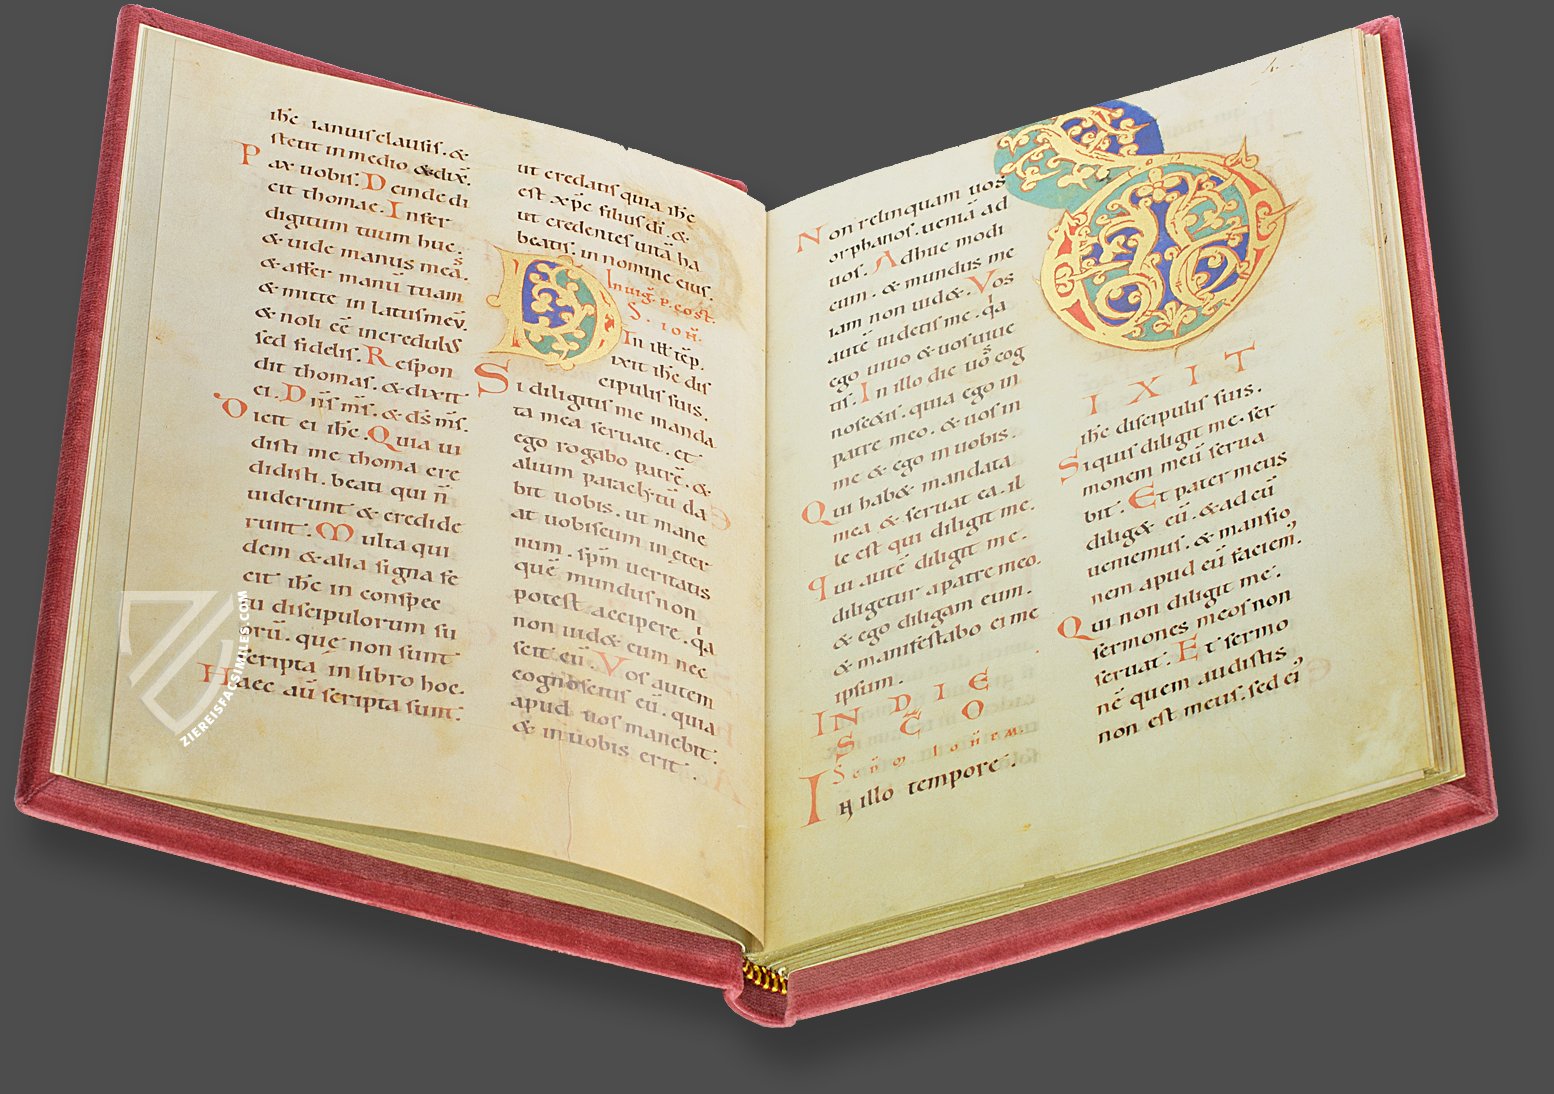 ihc ianuis clausis. &
stetit in medio & dix̄.
Pax uobis. Deinde di
cit thomae. Infer
digitum tuum huc
& uide manus meas.
& affer manū tuam
& mitte in latus meū.
& noli eē incredulus
sed fidelis. Respon
dit thomas. & dixit
ei. Dn̄s m̄s. & ds̄ m̄s.
Dicit ei ihc. Quia ui
disti me thoma cre
didisti. beati qui n̄
uiderunt & credide
runt. Multa qui
dem & alia signa fe
cit ihc in conspec
tu discipulorum su
orū. quę non sunt
scripta in libro hoc.
Haec aū scripta sunt.
ut credatis quia ihc
est xp̄c filius di. &
ut credentes uitā ha
beatis. in nomine eius.
In uig. pentecost.
S. ioh.
D In ill tēp.
ixit ihc dis
cipulis suis.
Si diligitis me manda
ta mea seruate. et
ego rogabo patrē. &
alium paraclytū da
bit uobis. ut mane
at uobiscum in ęter
num. sp̄m ueritatis
quē mundus non
potest accipere. qa
non uid& eum nec
scit eū. Vos autem
cognoscitis eū. quia
apud uos manebit.
& in uobis erit.
Non relinquam uos
orphanos. ueniā ad
uos. Adhuc modi
cum. & mundus me
iam non uid&. Vos
autē uidetis me. qa
ego uiuo & uos uiue
tis. In illo die uos cog
noscetis. quia ego in
patre meo. & uos in
me & ego in uobis.
Qui hab& mandata
mea & seruat ea. il
le est qui diligit me.
qui autē diligit me.
diligetur a patre meo.
& ego diligam eum.
& manifestabo ei me
ipsum.
IN DIE
SC̄O
In illo tempore.
D
IXIT
ihc discipulis suis.
Si quis diligit me. ser
monem meū serua
bit. Et pater meus
dilig& eū. & ad eū
ueniemus. & mansio
nem apud eū faciem,
Qui non diligit me.
sermones meos non
seruat. Et sermo
nē quem audistis
non est meus. sed ei,
ZIEREISFACSIMILES.COM